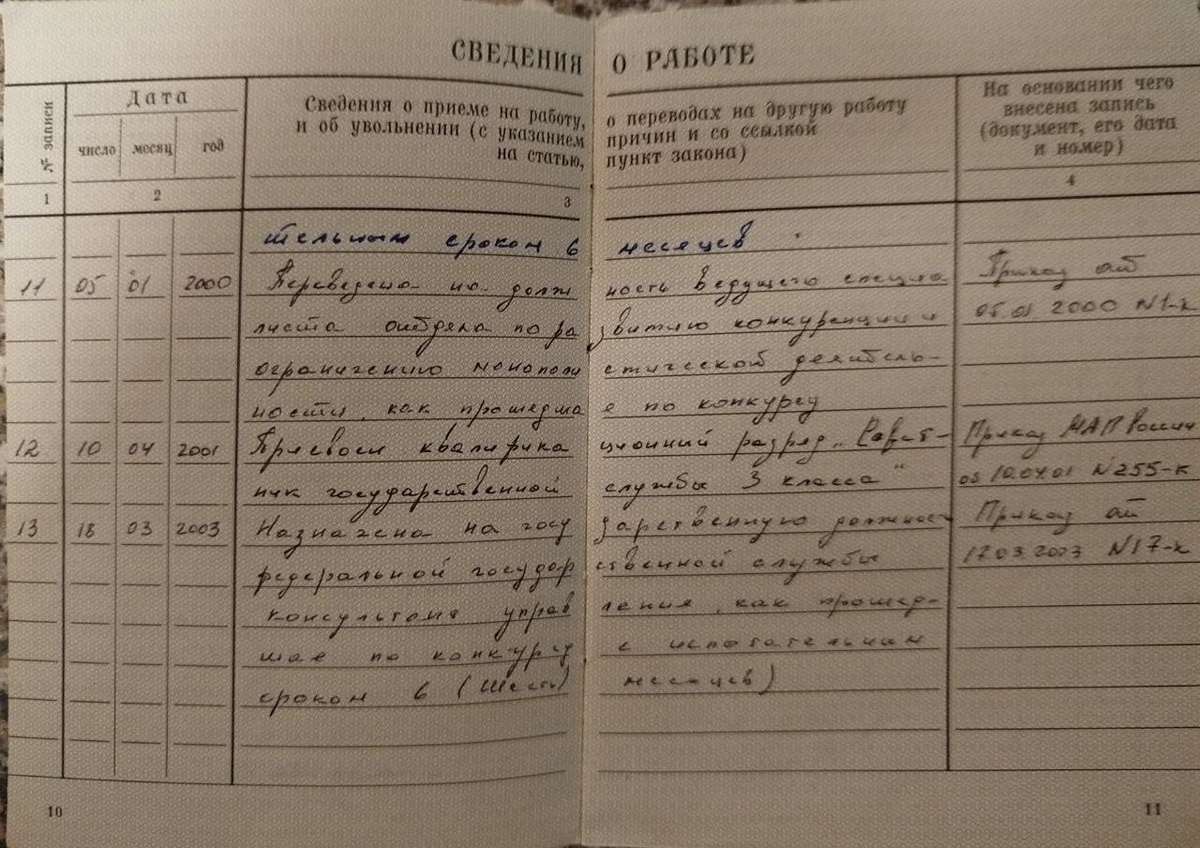 СВЕДЕНИЯ О РАБОТЕ
№ записи
Дата
число месяц год
Сведения о приеме на работу, о переводах на другую работу
и об увольнении (с указанием причин и со ссылкой
на статью, пункт закона)
На основании чего
внесена запись
(документ, его дата
и номер)
1 2 3 4
тельным сроком 6 месяцев
11 05 01 2000 Переведена на должность ведущего специа- Приказ от
листа отдела по развитию конкуренции и 05.01 2000 N1-к
ограничению монополистической деятель-
ности, как прошедшая по конкурсу
12 10 04 2001 Присвоен квалификационный разряд „Совет- Приказ МАП России
ник государственной службы 3 класса" от 10.04.01 N255-к
13 18 03 2003 Назначена на государственную должность Приказ от
федеральной государственной службы 17.03.2003 N17-к
консультанта управления, как прошед-
шая по конкурсу с испытательным
сроком 6 (шесть) месяцев)
10 11